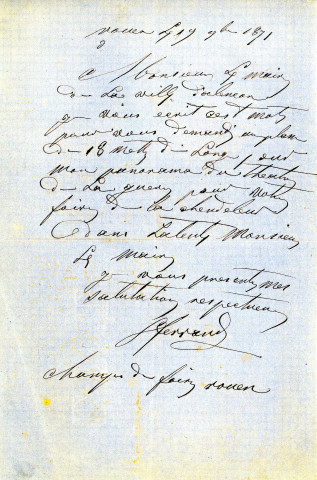 rouen le 19 9bre 1871
a Monsieur le maire
de la ville d'alencon
je vous ecrit ces mots
pour vous demandé un place
de 13 metre de Long pour
mon panorama du theatre
de La guerre pour votre
foire de la chendeleur
dans Latente Monsieur
Le maire
je vous presente mes
salutation respectueuse
Ferrand
champ de foire rouen